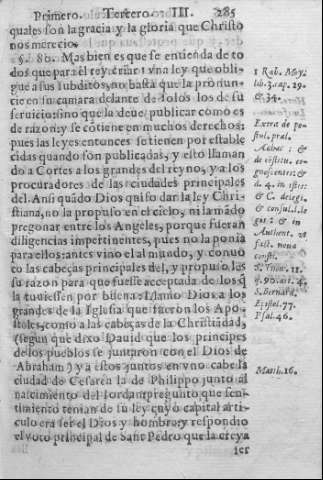 Primero. Tercero. III. 285
quales son la gracia y la gloria que Christo
nos merecio.
§. 80. Mas bien es que se entienda de to
dos que para el rey criar vna ley que obli-
gue a sus subditos, no basta que la pronun-
cie en su camara delante de solos los de su
seruicio: sino que la deue publicar como es
de razon: y se cōtiene en muchos derechos:
pues las leyes entonces se tienen por estable
cidas quando son publicadas, y esto llaman
do a Cortes a los grandes del reyno, y a los
procuradores de las ciudades principales
del. Ansi quādo Dios quiso dar la ley Chri-
stiana, no la propuso en el cielo, ni la mādo
pregonar entre los Angeles, porque fueran
diligencias impertinentes, pues no la ponia
para ellos: antes vino al mundo, y conuo
co las cabeças principales del, y propuso las
su razon para que fuesse acceptada de los q̄
la tuuiessen por buena. Llamo Dios a los
grandes de la Iglesia que fueron los Apo-
stoles, como a las cabeças de la Christiādad,
(segun que dixo Dauid que los principes
de los pueblos se juntaron con el Dios de
Abraham) y a estos juntos en vno cabe la
ciudad de Cesarea la de Philippo junto al
nacimiento del Iordan pregunto que sen-
timiento tenian de su ley cuyo capital arti-
culo era ser el Dios y hombre: y respondio
el voto principal de Sant Pedro que la creya
ser
1 Rab. Moy.
lib. 3. cap. 29.
& 34.
Extra de po
stul. præl.
&
de cōstitu.
d. 4. in istis:
& C. de legi.
& consul. l. le
ges: & in
Authent. vt
fact. nouæ
consti.
S. Thom. 12.
q. 90. art. 4.
S. Bernard.
Epist. 77.
Psal. 46.
Matth. 16.